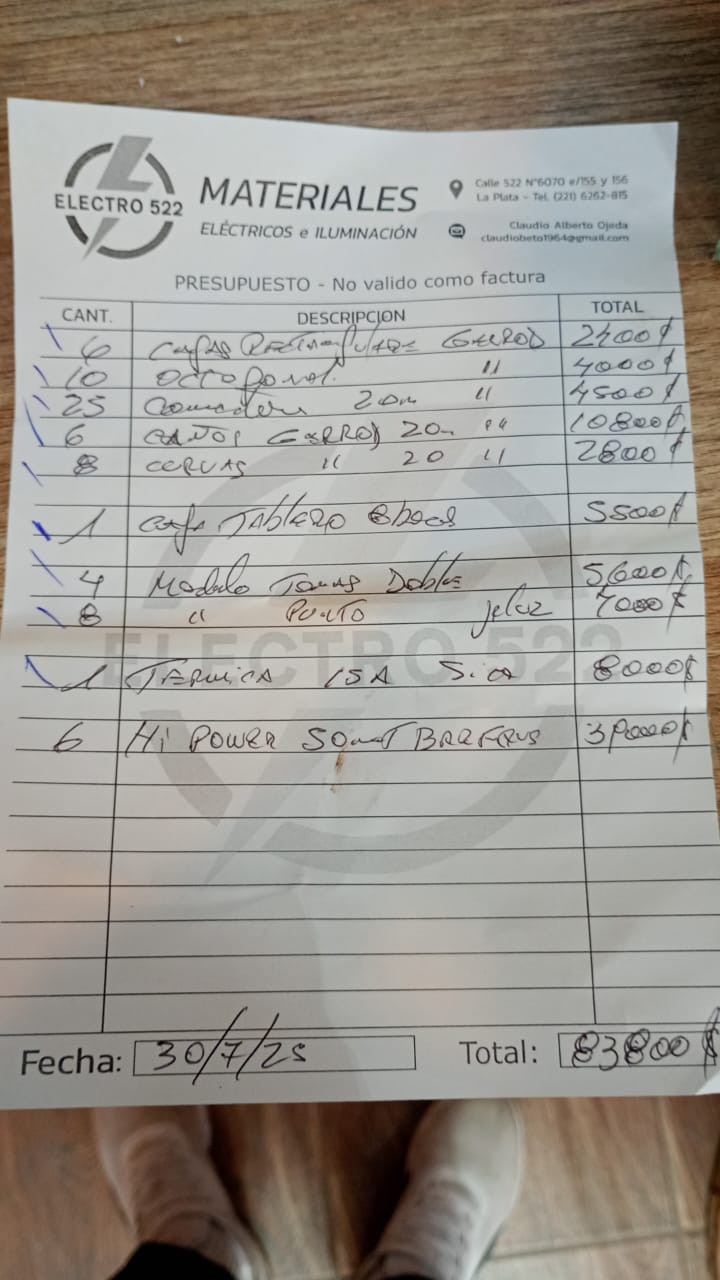 ELECTRO 522
MATERIALES
ELÉCTRICOS e ILUMINACIÓN
Calle 522 N°6070 e/155 y 156
La Plata - Tel. (221) 6262-815
Claudio Alberto Ojeda
claudiobeto1964@gmail.com
PRESUPUESTO - No valido como factura
CANT. DESCRIPCION TOTAL
6 Cajas Rectangulares 2400$
10 Octogonal " 4000$
25 20m " 4500$
6 CAÑOS 20m " 10800$
8 CURVAS " 20 " 2800$
1 Caja TABLERO 5500$
4 Modulo Tomas Dobles 5600$
8 " PUNTO 7000$
ELECTRO 522
1 TERMICA 15A Sica 8000$
6 Hi POWER 50mt
Fecha: 30/7/25 Total: 83800$